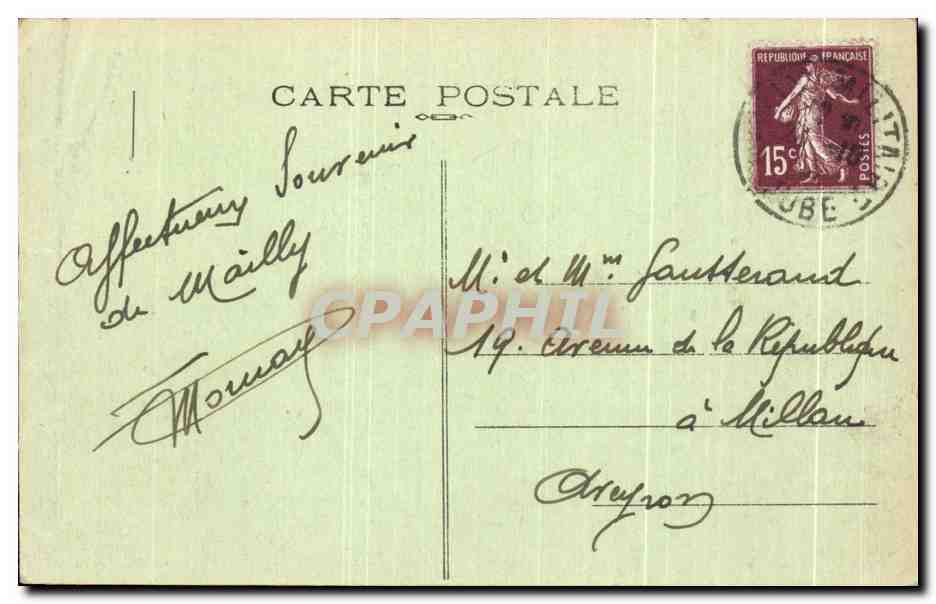 CARTE POSTALE
REPUBLIQUE FRANÇAISE
15c
POSTES
MILITAIRE
AUBE
Affectueux Souvenir
de Mailly
CPAPHIL
Mr. et Mme. Gautterand
19. Avenue de la République
à Millau
Aveyron